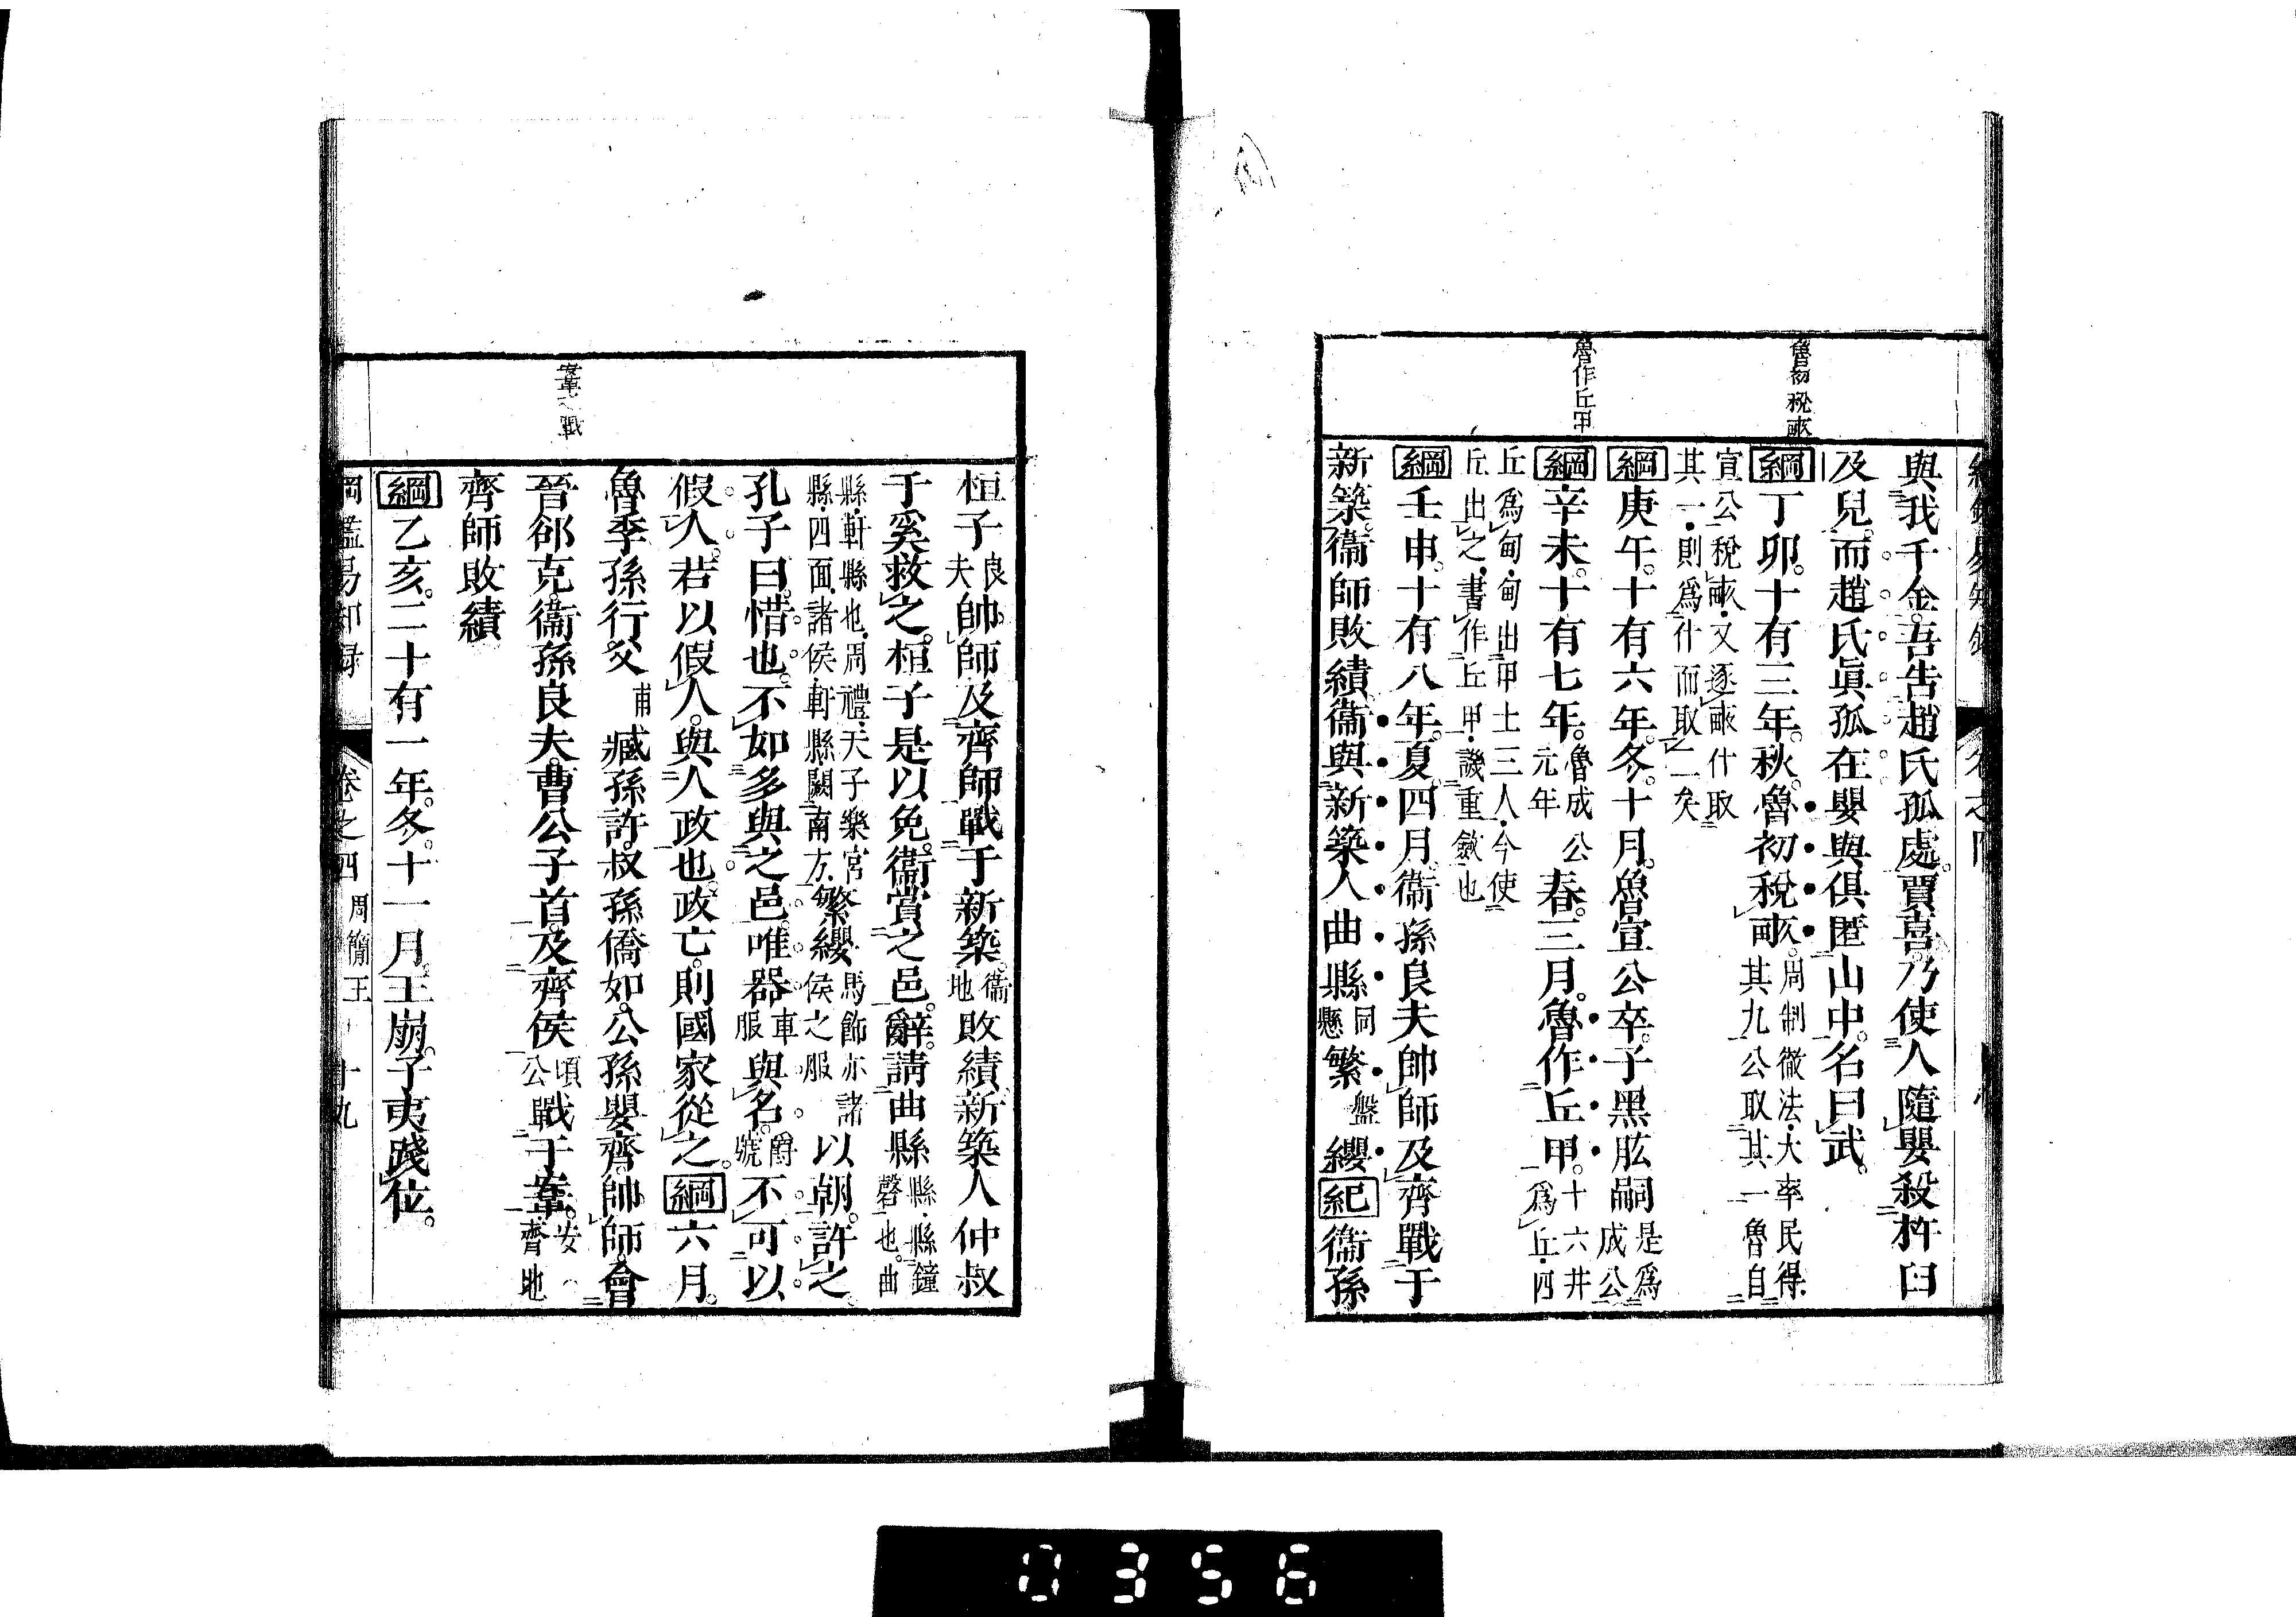 魯初稅畝
魯作丘甲
與我千金。吾告趙氏孤處。賈喜。乃使人隨嬰殺杵臼
及兒。而趙氏眞孤在嬰與俱匿山中。名曰武。
綱丁卯。十有三年。秋。魯初稅畝。周制徹法。大率民得其九公取其一魯自
宣公稅畝。又逐畝什取其一。則爲什而取二矣
綱庚午。十有六年。冬。十月。魯宣公卒。子黑肱嗣是爲成公
綱辛未。十有七年。魯成公元年春。三月。魯作丘甲。十六井爲丘。四
丘爲甸。甸出甲士三人。今使丘出之。書作丘甲。譏重斂也
綱壬申。十有八年。夏。四月。衞孫良夫帥師及齊戰于
新築。衞師敗績。衞與新築人曲縣同懸繁盤纓紀衞孫
鞌之戰
桓子良夫帥師及齊師戰于新築。衞地敗績。新築人仲叔
于奚救之。桓子是以免。衞賞之邑。辭。請曲縣縣。縣鐘磬也。曲
縣。軒縣也。周禮。天子樂宮縣。四面。諸侯軒縣。闕南方。繁纓馬飾亦諸侯之服以朝。許之。
孔子曰。惜也。不如多與之邑。唯器車服與名。爵號不可以
假人。若以假人。與人政也。政亡。則國家從之。綱六月。
魯季孫行父甫臧孫許。叔孫僑如。公孫嬰齊。帥師。會
晉郤克。衞孫良夫。曹公子首。及齊侯頃公戰于鞌。安齊地
齊師敗績
綱乙亥。二十有一年。冬。十一月。王崩。子夷踐位。
綱鑑易知録 卷之四 周簡王 十九